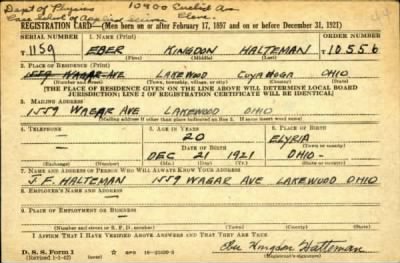 Dept of Physics 10900 Euclid Av
Case School of Applied Science Cleve.
REGISTRATION CARD—(Men born on or after February 17, 1897 and on or before December 31, 1921)
SERIAL NUMBER 1. NAME (Print) ORDER NUMBER
T 1159 EBER KINGDON HALTEMAN 10556
(First) (Middle) (Last)
2. PLACE OF RESIDENCE (Print)
1559 WAGAR AVE LAKEWOOD CUYAHOGA OHIO
(Number and street) (Town, township, village, or city) (County) (State)
[THE PLACE OF RESIDENCE GIVEN ON THE LINE ABOVE WILL DETERMINE LOCAL BOARD
JURISDICTION; LINE 2 OF REGISTRATION CERTIFICATE WILL BE IDENTICAL]
3. MAILING ADDRESS
1559 WAGAR AVE LAKEWOOD OHIO
[Mailing address if other than place indicated on line 2. If same insert word same]
4. TELEPHONE 5. AGE IN YEARS 6. PLACE OF BIRTH
20 ELYRIA
DATE OF BIRTH (Town or county)
DEC 21 1921 OHIO
(Exchange) (Number) (Mo.) (Day) (Yr.) (State or country)
7. NAME AND ADDRESS OF PERSON WHO WILL ALWAYS KNOW YOUR ADDRESS
J.F. HALTEMAN 1559 WAGAR AVE LAKEWOOD OHIO
8. EMPLOYER'S NAME AND ADDRESS
9. PLACE OF EMPLOYMENT OR BUSINESS
(Number and street or R. F. D. number) (Town) (County) (State)
I AFFIRM THAT I HAVE VERIFIED ABOVE ANSWERS AND THAT THEY ARE TRUE.
D. S. S. Form 1 GPO Eber Kingdon Halteman
(Revised 1-1-42) (over) (Registrant's signature)